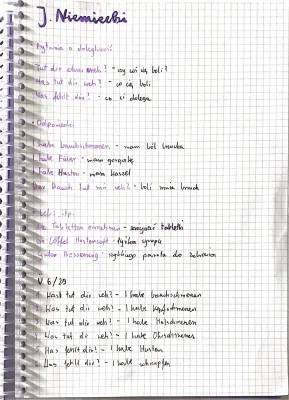 J. Niemiecki
Pytania o dolegliwość
Tut dir etwas weh? - czy coś cię boli?
Was tut dir weh? - co cię boli
Was fehlt dir? - co ci dolega
Odpowiedzi
I habe bauchschmerzen - mam ból brzucha
I habe Fieber - mam gorączkę
I habe Husten - mam kaszel
Der Bauch tut mir weh? - boli mnie brzuch
Leki itp.
Die Tabletten einnehmen - zażywać tabletki
ein Löffel Hustensaft - łyżka syropu
Gute Besserung - szybkiego powrotu do zdrowia
V 6/29
Wast tut dir weh? - I habe bauchschmerzen
Was tut dir weh? - I habe kopfschmerzen
Was tut dir weh? - I habe Halschmerzen
Was tut dir weh? - I habe Ohrschmerzen
Was fehlt dir? - I habe Husten
Was fehlt dir? - I habe schnupfen